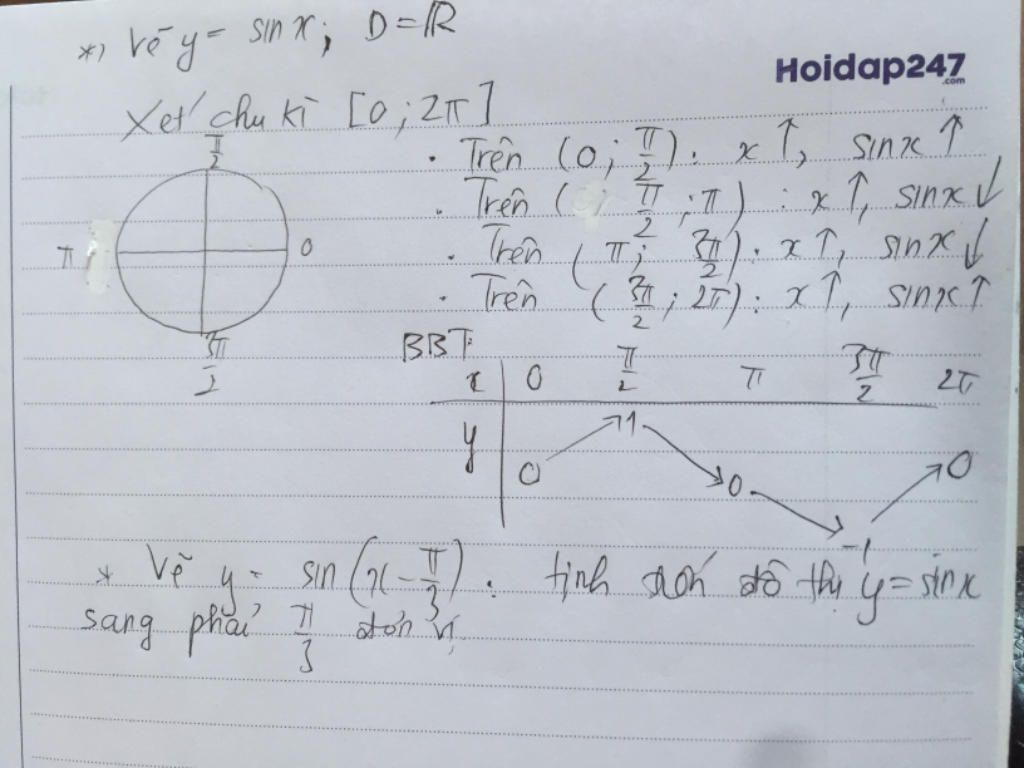 *) Vẽ y = sin x ; D = ℝ
Hoidap247
.com
Xét chu kì [0 ; 2π]
π/2
π
0
3π/2
. Trên (0 ; π/2) : x ↑, sin x ↑
. Trên (π/2 ; π) : x ↑, sin x ↓
. Trên (π ; 3π/2) : x ↑, sin x ↓
. Trên (3π/2 ; 2π) : x ↑, sin x ↑
BBT:
x | 0 π/2 π 3π/2 2π
y | 0 ↗ 1 ↘ 0 ↘ -1 ↗ 0
* Vẽ y = sin (x - π/3) : tịnh tiến đồ thị y = sin x
sang phải π/3 đơn vị.